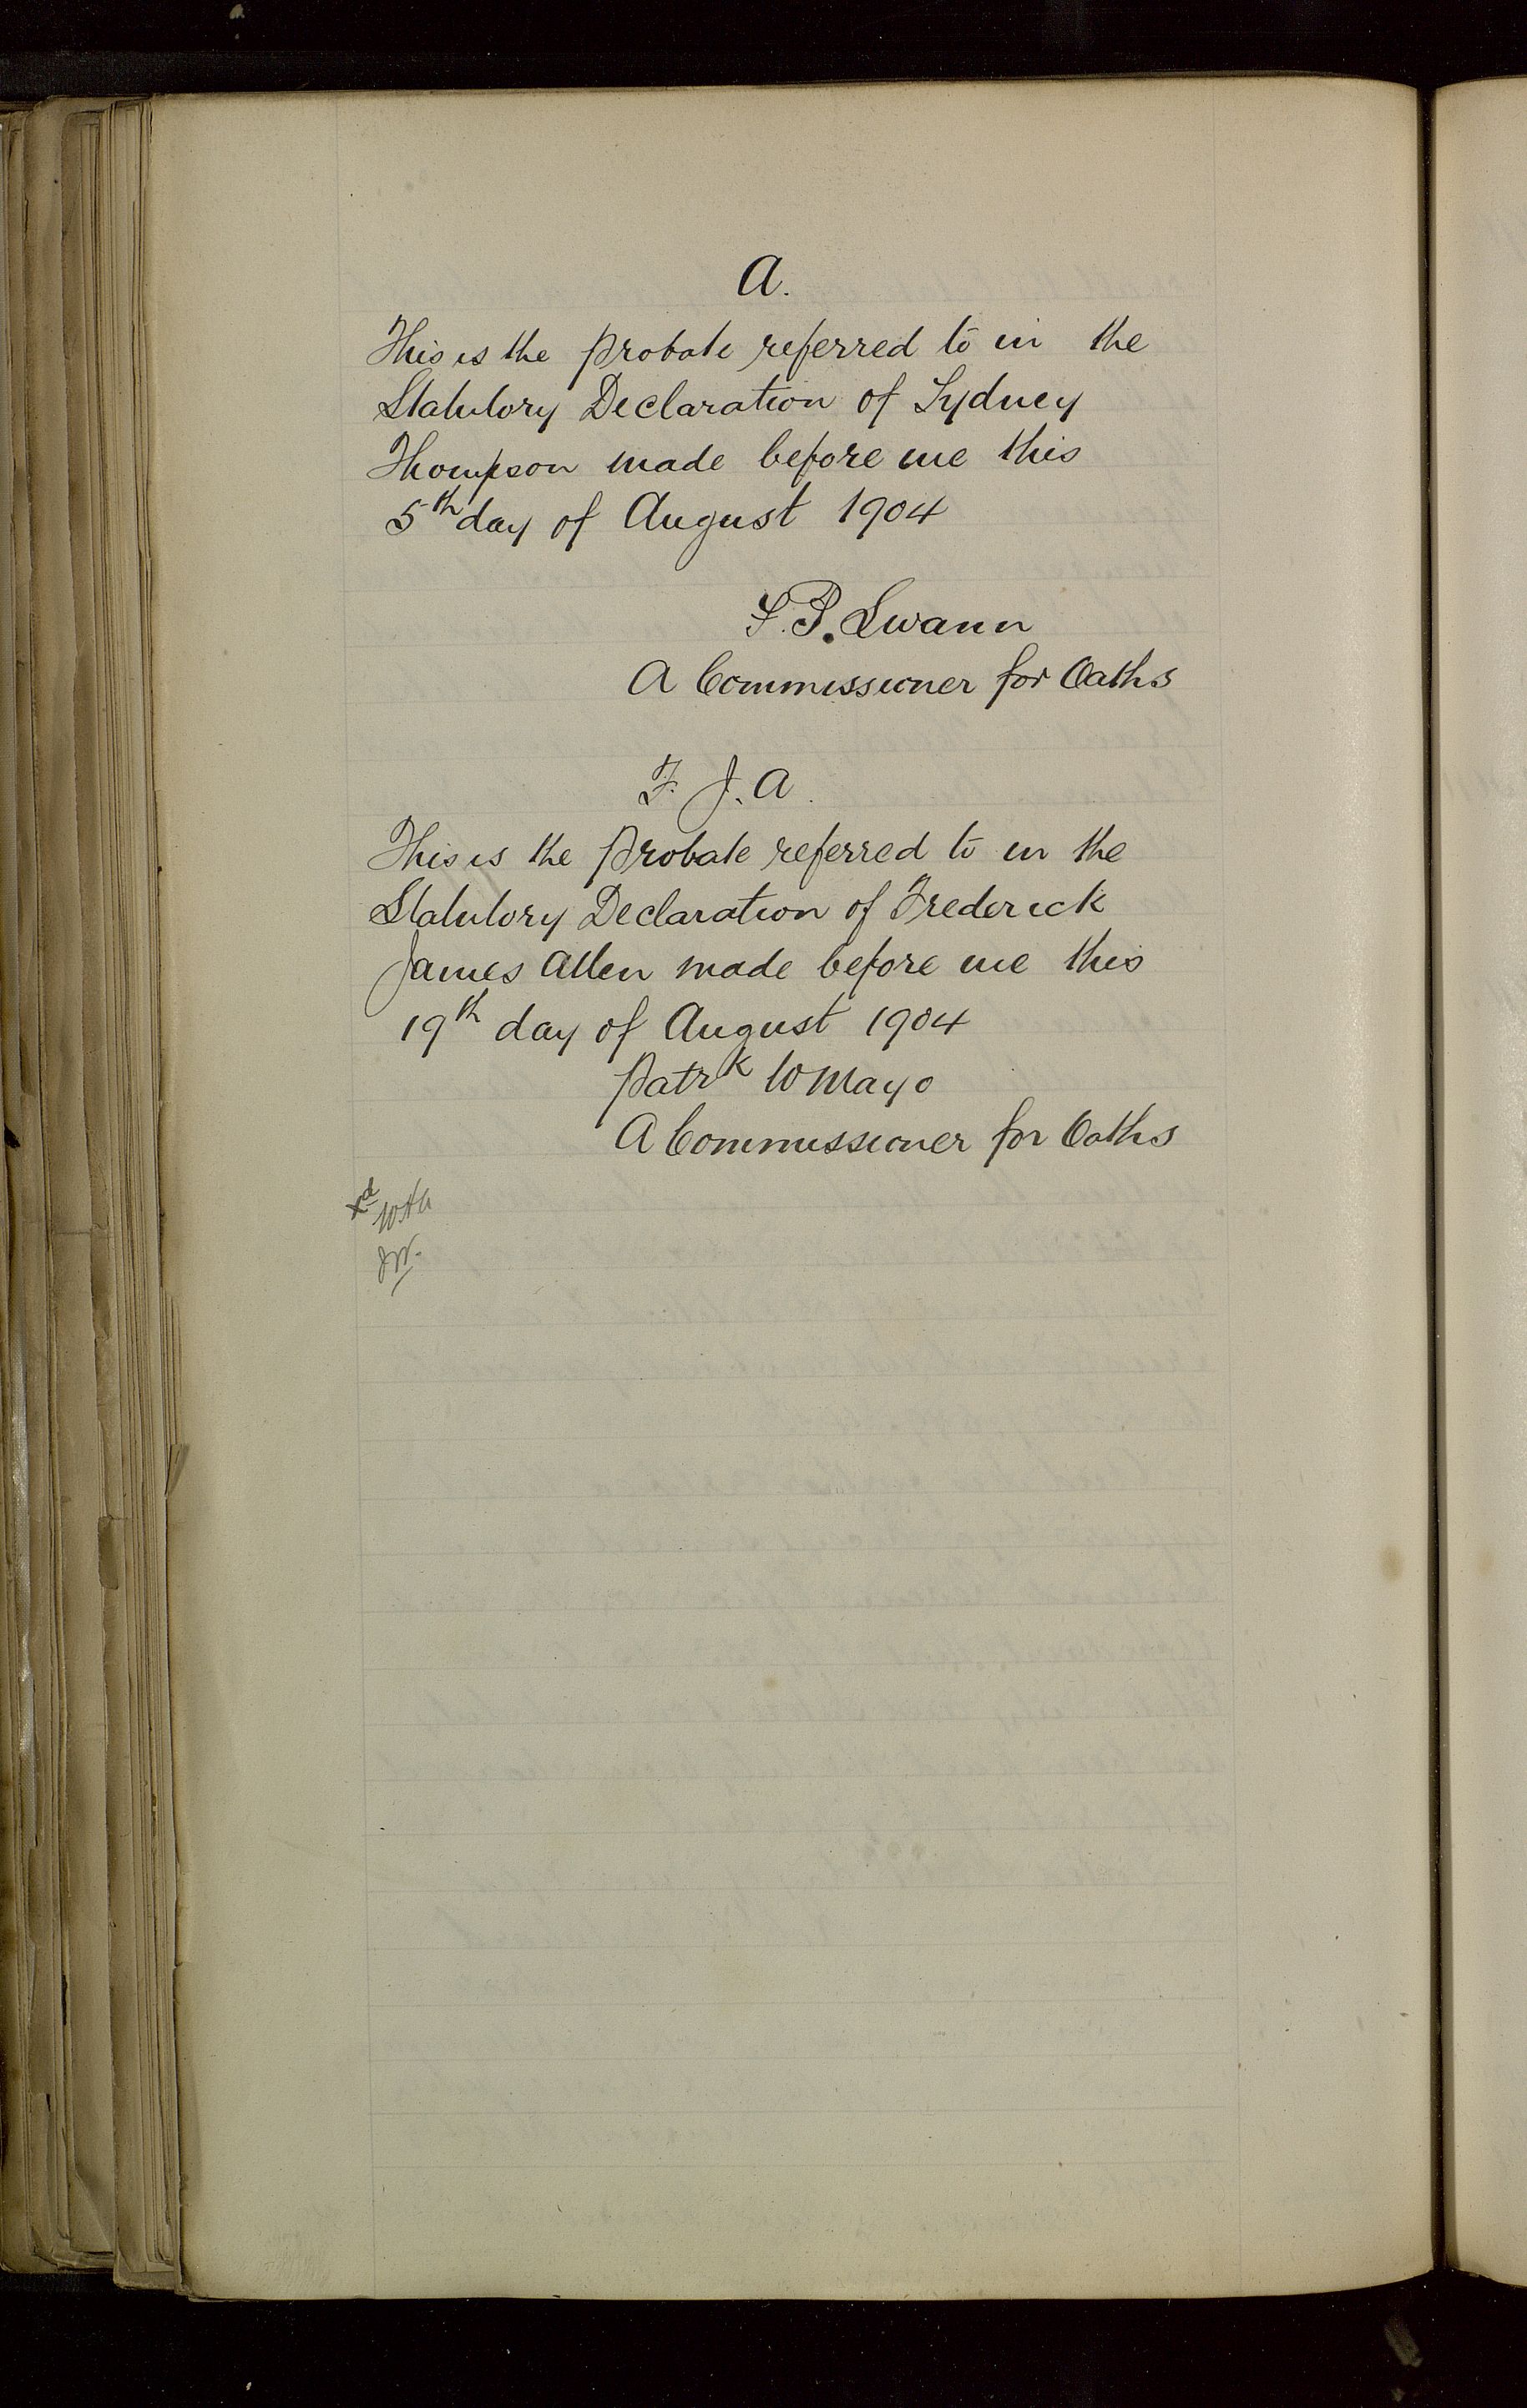 A.
This is the Probate referred to in the
Statutory Declaration of Sydney
Thompson made before me this
5th day of August 1904
S. P. Swann
A Commissioner for Oaths
F. J. A.
This is the Probate referred to in the
Statutory Declaration of Frederick
James Allen made before me this
19th day of August 1904
Patrk W Mayo
A Commissioner for Oaths
Xd